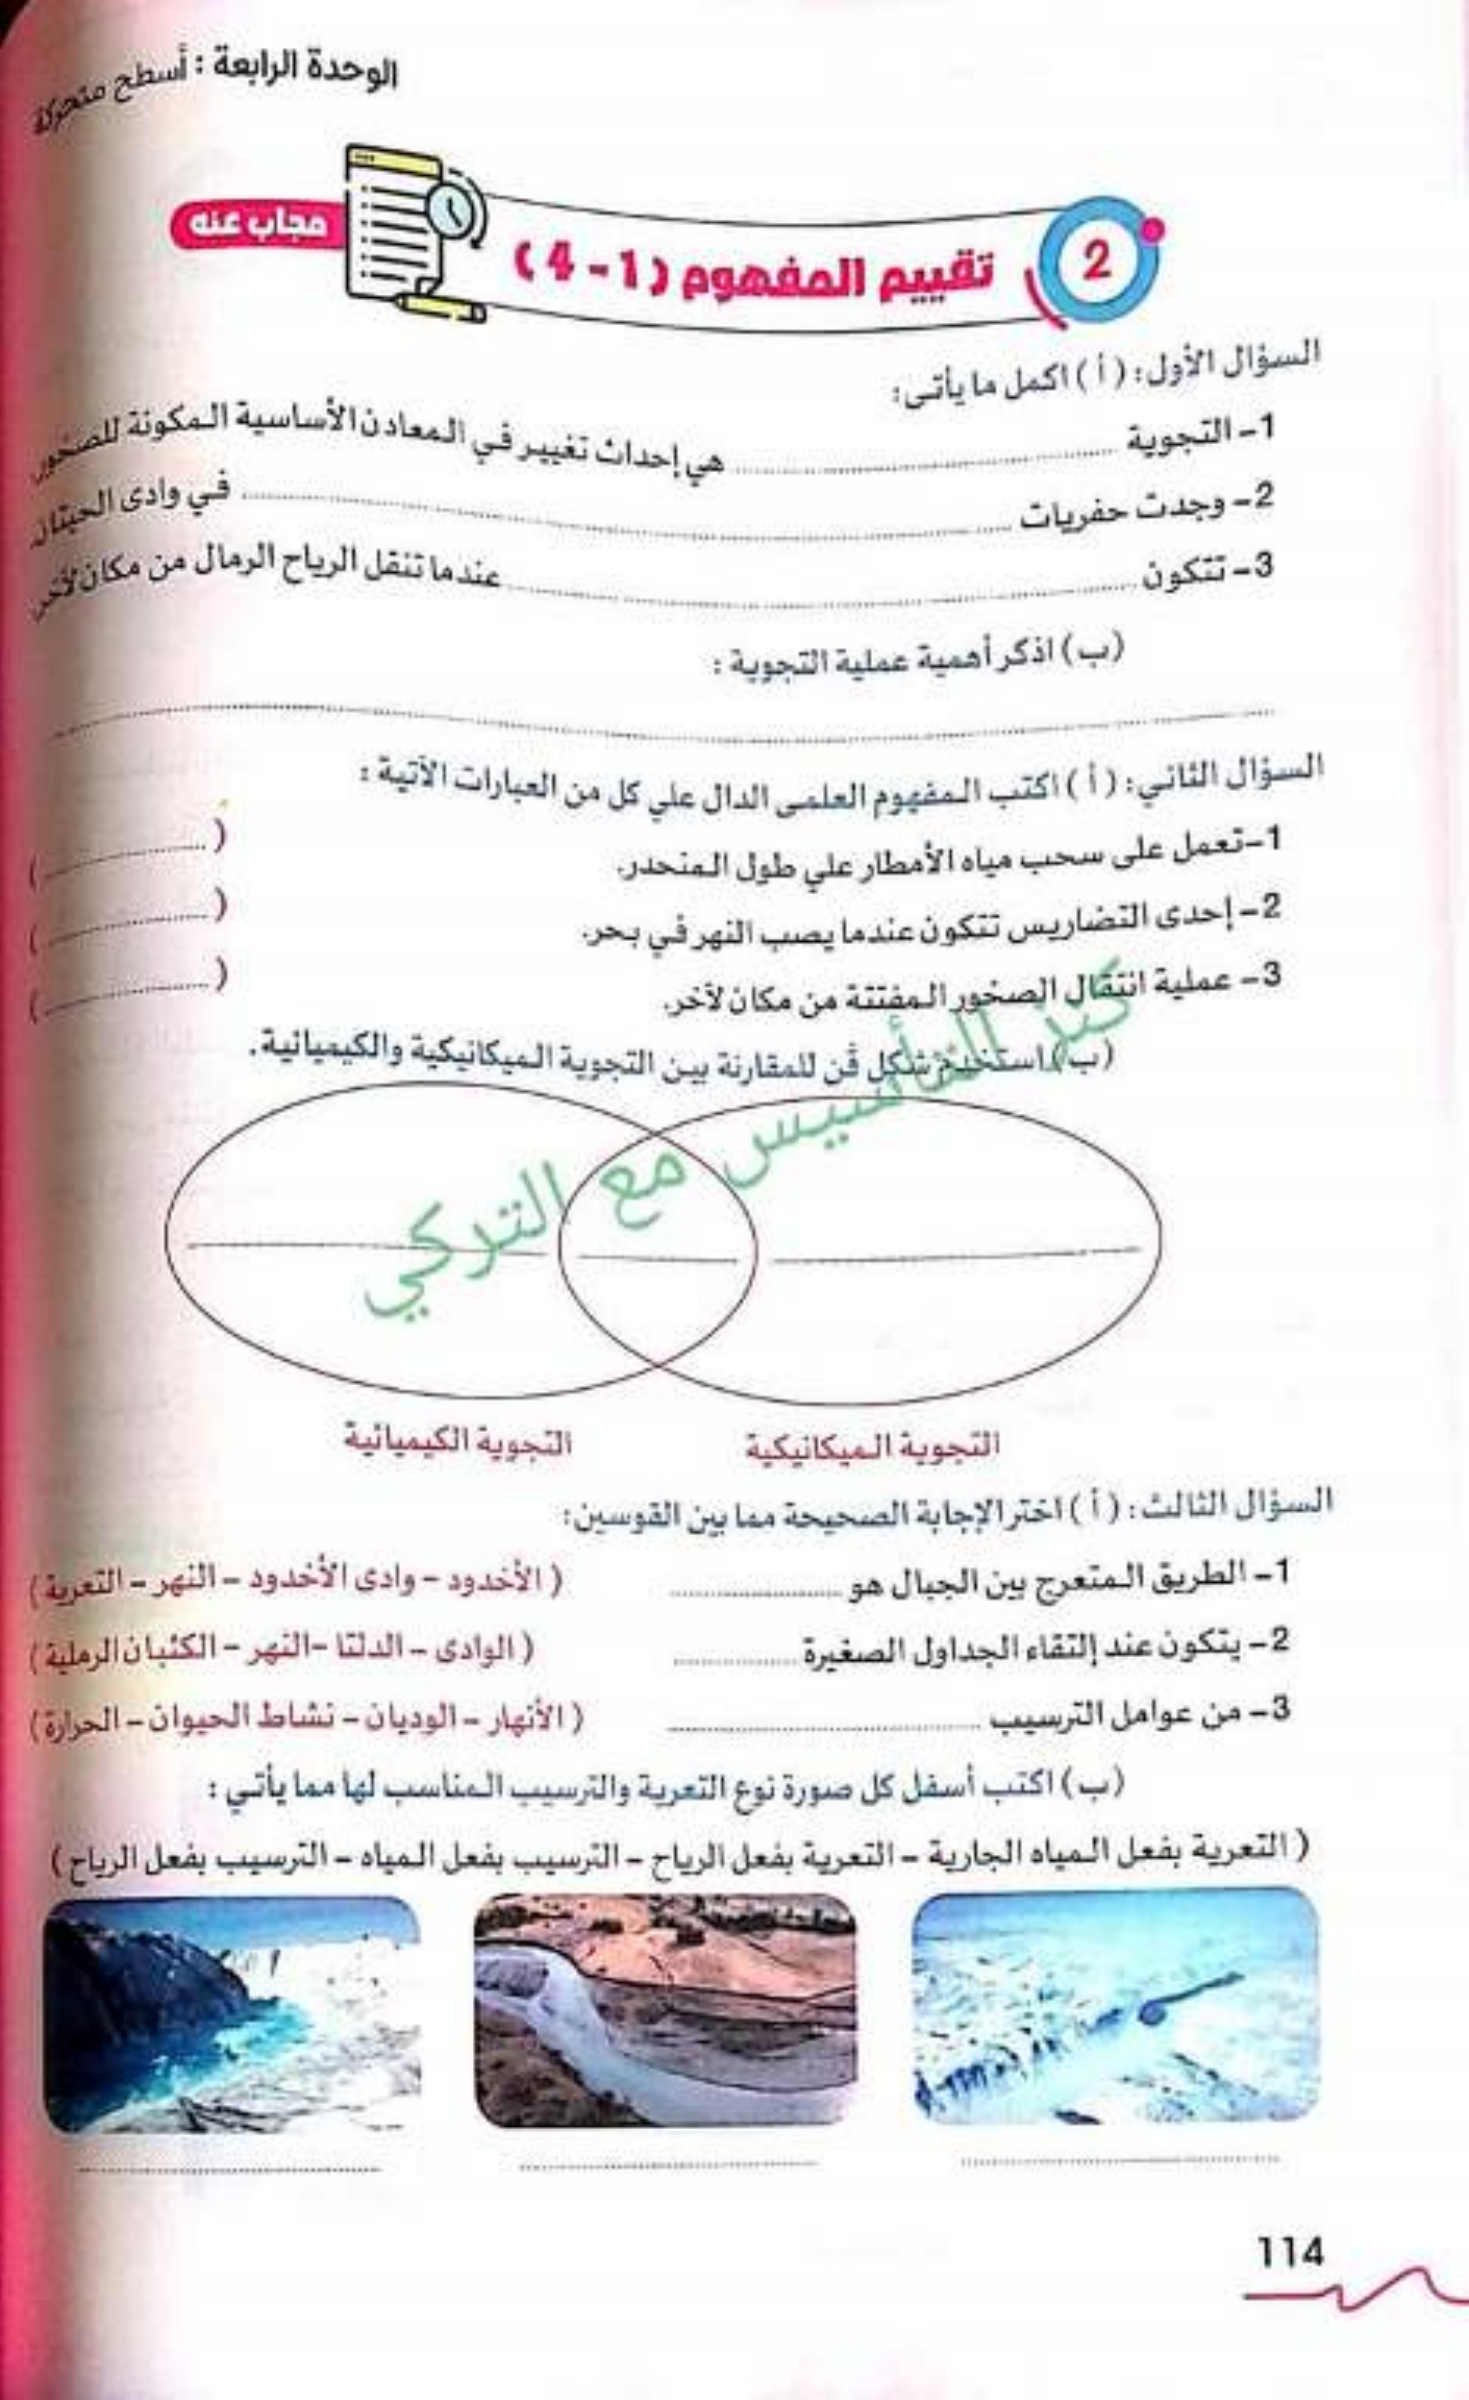 الوحدة الرابعة : أسطح متحركة
مجاب عنه
2
تقييم المفهوم (1 - 4)
السؤال الأول: (أ) اكمل ما يأتى:
1- التجوية ........ هي إحداث تغيير في المعادن الأساسية المكونة للصخور
2- وجدت حفريات ........ في وادى الحيتان.
3- تتكون ........ عندما تنقل الرياح الرمال من مكان لآخر
(ب) اذكر أهمية عملية التجوية :
السؤال الثاني: (أ) اكتب المفهوم العلمى الدال علي كل من العبارات الآتية :
1-تعمل على سحب مياه الأمطار علي طول المنحدر. (........)
2- إحدى التضاريس تتكون عندما يصب النهر في بحر. (........)
3- عملية انتقال الصخور المفتتة من مكان لآخر. (........)
(ب) استخدم شكل ڤن للمقارنة بين التجوية الميكانيكية والكيميائية.
كنز التأسيس مع التركي
التجوية الميكانيكية
التجوية الكيميائية
السؤال الثالث: (أ) اختر الإجابة الصحيحة مما بين القوسين:
1- الطريق المتعرج بين الجبال هو ........ (الأخدود - وادى الأخدود - النهر - التعرية)
2- يتكون عند إلتقاء الجداول الصغيرة ........ (الوادى - الدلتا -النهر - الكثبان الرملية)
3- من عوامل الترسيب ........ (الأنهار - الوديان - نشاط الحيوان - الحرارة)
(ب) اكتب أسفل كل صورة نوع التعرية والترسيب المناسب لها مما يأتي :
(التعرية بفعل المياه الجارية - التعرية بفعل الرياح - الترسيب بفعل المياه - الترسيب بفعل الرياح)
114